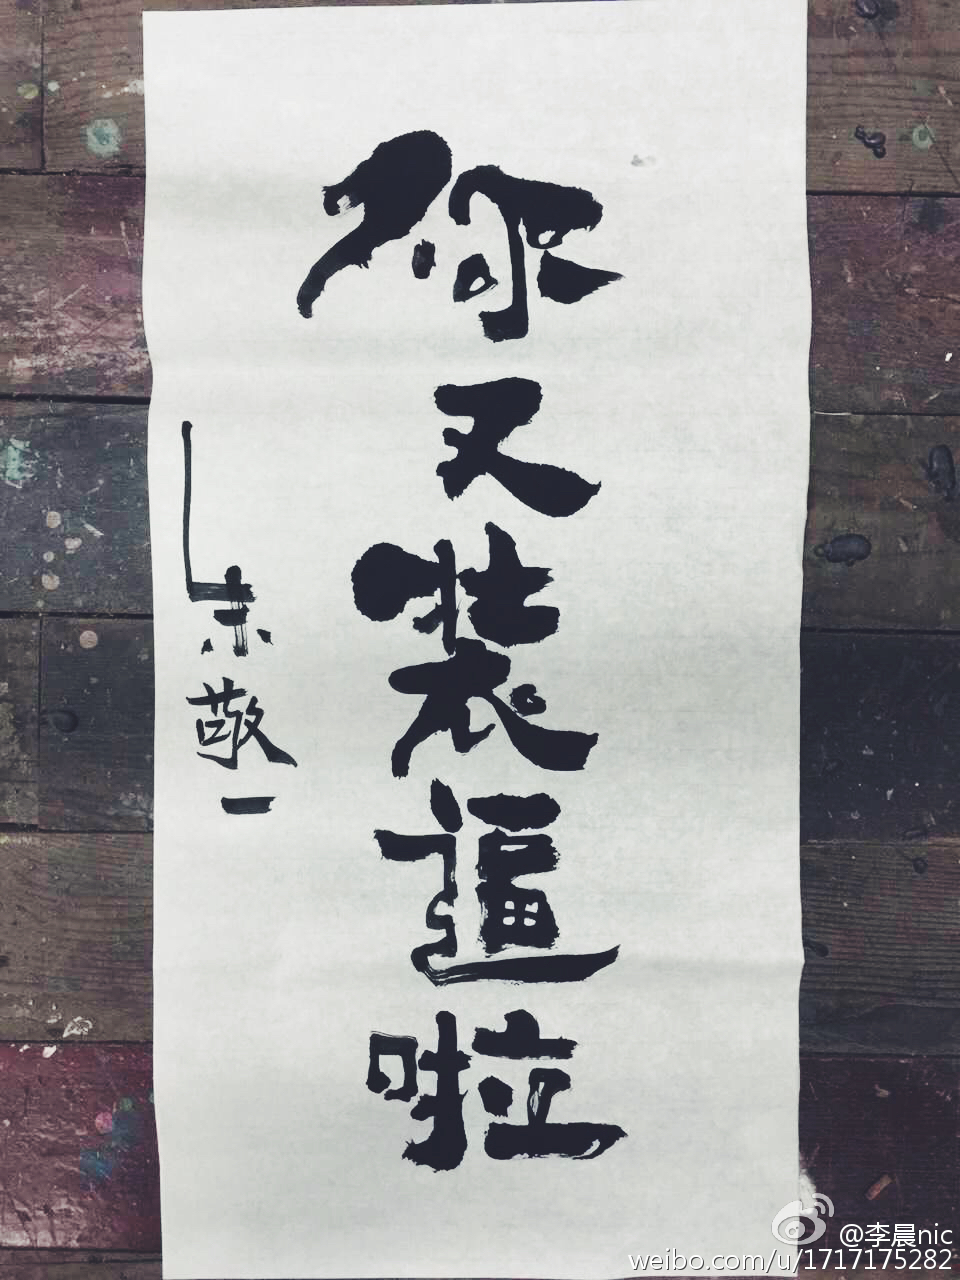 你又装逼啦
朱敬一
@李晨nic
weibo.com/u/1717175282